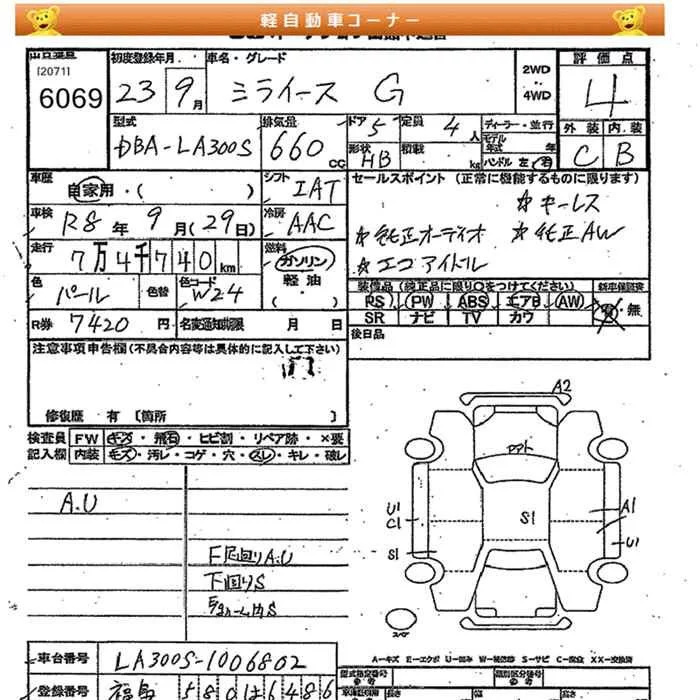 軽自動車コーナー
[2071]
6069
初度登録年月 車名・グレード
23 9月 ミライース G
2WD
4WD
評価点
4
外装 内装
C B
型式 DBA-LA300S
排気量 660 CC
ドア 5 定員 4 人
形状 HB 積載 kg
ディーラー・並行
モデル年式 年
ハンドル 左・右
車歴 自家用・( )
シフト IAT
車検 R8年9月(29日)
冷房 AAC
走行 7万4千740km
燃料 ガソリン
軽油
( )
色 パール 色替 色コード W24
R券 7420円 名変通知期限 月 日
セールスポイント (正常に機能するものに限ります)
☆キーレス
☆純正オーディオ ☆純正AW
☆エコアイドル
装備品(純正品に限り○をつけてください) 新車保証書
PS PW ABS エアB AW
SR ナビ TV カワ
有・無
後日品
注意事項申告欄(不具合内容等は具体的に記入して下さい)
修復歴 有 〔箇所 〕
検査員 FW キズ・飛石・ヒビ割・リペア跡・×要
記入欄 内装 キズ・汚レ・コゲ・穴・スレ・キレ・破レ
A.U
F足回りA.U
下回りS
A2
U1
C1
S1
S1
A1
U1
スペア
A=キズ E=エクボ U=凹み W=補修跡 S=サビ C=腐食 XX=交換済
車台番号 LA300S-1006802
登録番号
型式指定番号 類別区分番号
長さ